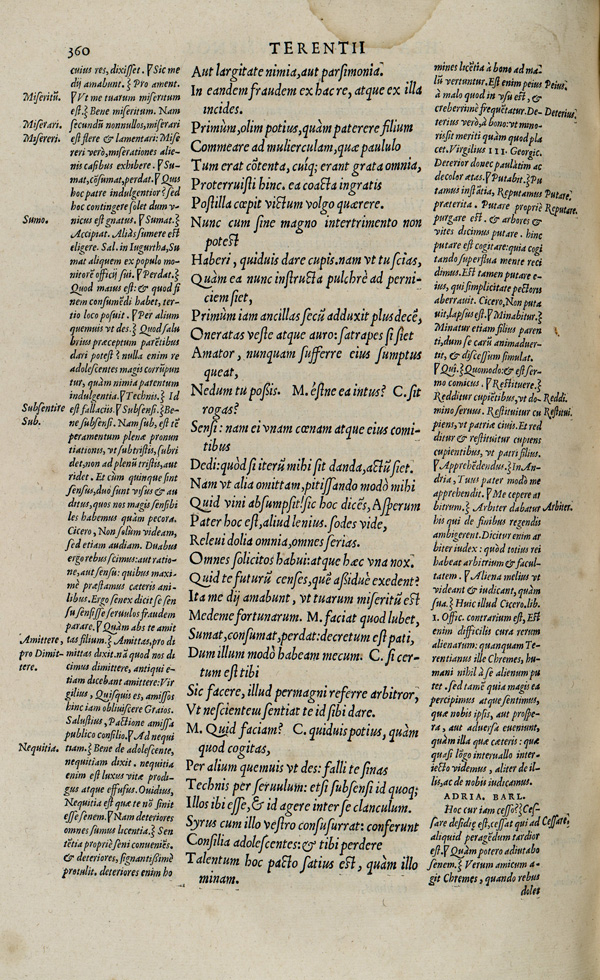 360
TERENTII
cuius res, dixisset. ⁋ Sic me
dij amabunt. ⸹ Pro ament.
⁋ Vt me tuarum miseritum
est. ⸹ Bene miseritum. Nam
secundũ nonnullos, miserari
est flere & lamentari: Mise
reri verò, miserationes alie-
nis casibus exhibere. ⁋ Su-
mat, cõsumat, perdat. ⁋ Quis
hoc patre indulgentior? sed
hoc contingere solet dum v-
nicus est gnatus. ⁋ Sumat. ⸹
Accipiat. Aliàs sumere est
eligere. Sal. in Iugurtha, Su
mat aliquem ex populo mo-
nitorẽ officij sui. ⁋ Perdat. ⸹
Quod maius est: & quod si
nem consumẽdi habet, ter-
tio loco posuit. ⁋ Per alium
quemuis vt des. ⸹ Quod salu
brius præceptum parẽtibus
dari potest? nulla enim re
adolescentes magis corrũpun
tur, quàm nimia patentum
indulgentia. ⁋ Technis. ⸹ Id
est fallaciis. ⁋ Subsensi. ⸹ Be-
ne subsensi. Nam sub, est tẽ
peramentum plenæ pronun
tiationis, vt subtristis, subri
det, non ad plenũ tristis, aut
ridet. Et cùm quinque sint
sensus, duo sunt visus & au
ditus, quos nos magis sensibi
les habemus quàm pecora.
Cicero, Non solùm videam,
sed etiam audiam. Duabus
ergo rebus scimus: aut ratio-
ne, aut sensu: quibus maxi-
mè præstamus cæteris ani-
libus. Ergo senex dicit se sen
su sensisse seruulos fraudem
parare. ⁋ Quàm abs te amit
tas filium. ⸹ Amittas, pro di
mittas dixit. nã quod nos di
cimus dimittere, antiqui e-
tiam dicebant amittere: Vir
gilius, Quisquis es, amissos
hinc iam obliuiscere Graios.
Salustius, Pactione amissa
publico consilio. ⁋ Ad nequi
tiam. ⸹ Bene de adolescente,
nequitiam dixit. nequitia
enim est luxus vitæ prodi-
gus atque effusus. Ouidius,
Nequitia est quæ te nõ sinit
esse senem. ⁋ Nam deteriores
omnes sumus licentia. ⸹ Sen
tẽtia propriè seni conueniẽs.
& deteriores, significantissimè
protulit. deteriores enim ho
Miseritũ.
Miserari.
Misereri.
Sumo.
Subsentire
Sub.
Amittere,
pro Dimit-
tere.
Nequitia.
Aut largitate nimia, aut parsimonia.
In eandem fraudem ex hac re, atque ex illa
incides.
Primùm, olim potius, quàm paterere filium
Commeare ad mulierculam, quæ paululo
Tum erat cõtenta, cuiq; erant grata omnia,
Proterruisti hinc. ea coacta ingratis
Postilla cœpit victum volgo quærere.
Nunc cum sine magno intertrimento non
potest
Haberi, quiduis dare cupis. nam vt tu scias,
Quàm ea nunc instructa pulchrè ad perni-
ciem siet,
Primùm iam ancillas secũ adduxit plus decẽ,
Oneratas veste atque auro: satrapes si siet
Amator, nunquam sufferre eius sumptus
queat,
Nedum tu possis. M. éstne ea intus? C. sit
rogas?
Sensi: nam ei vnam cœnam atque eius comi-
tibus
Dedi: quòd si iterũ mihi sit danda, actũ siet.
Nam vt alia omittam, pitissando modò mihi
Quid vini absumpsit! sic hoc dicẽs, Asperum
Pater hoc est, aliud lenius. sodes vide,
Releui dolia omnia, omnes serias.
Omnes solicitos habui: atque hæc vna nox.
Quid te futurũ censes, quẽ assiduè exedent?
Ita me dij amabunt, vt tuarum miseritũ est
Medeme fortunarum. M. faciat quod lubet,
Sumat, consumat, perdat: decretum est pati,
Dum illum modò habeam mecum. C. si cer-
tum est tibi
Sic facere, illud permagni referre arbitror,
Vt nescienteni sentiat te id sibi dare.
M. Quid faciam? C. quiduis potius, quàm
quod cogitas,
Per alium quemuis vt des: falli te sinas
Technis per seruulum: etsi subsensi id quoq;
Illos ibi esse, & id agere inter se clanculum.
Syrus cum illo vestro consusurrat: conferunt
Consilia adolescentes: & tibi perdere
Talentum hoc pacto satius est, quàm illo
minam.
mines licẽtia à bono ad ma-
lũ vertuntur. Est enim peius
à malo quod in vsu est, &
creberrimè frequẽtatur. De-
terius verò, à bono: vt mino-
ris sit meriti quàm quod pla
cet. Virgilius III. Georgic.
Deterior donec paulatim ac
decolor ætas. ⁋ Putabit. ⸹ Pu
tamus instãtia, Reputamus
præterita. Putare propriè
purgare est. & arbores &
vites dicimus putare. hinc
putare est cogitare: quia cogi
tando superflua mente reci
dimus. Est tamen putare e-
ius, qui simplicitate pectoris
aberrauit. Cicero, Non puta
uit, lapsus est. ⁋ Minabitur. ⸹
Minatur etiam filius paren
ti, dum se carũ animaduer-
tit, & discessum simulat.
⁋ Qui. ⸹ Quomodo: & est ser-
mo comicus. ⁋ Restituere. ⸹
Redditur cupiẽtibus, vt do-
mino seruus. Restituitur cu
piens, vt patria ciuis. Et red
ditur & restituitur cupiens
cupientibus, vt patri filius.
⁋ Apprehẽdendus. ⸹ In An-
dria, Tuus pater modo me
apprehendit. ⁋ Me cepere ar
bitrum. ⸹ Arbiter dabatur
his qui de finibus regendis
ambigerent. Dicitur enim ar
biter iudex: quòd totius rei
habeat arbitrium & facul-
tatem. ⁋ Aliena melius vt
videant & iudicant, quàm
sua. ⸹ Huic illud Cicero. lib.
1. Offic. contrarium est, Est
enim difficilis cura rerum
alienarum: quanquam Te-
rentianus ille Chremes, hu-
mani nihil à se alienum pu
tet. sed tamẽ quia magis ea
percipimus atque sentimus,
quæ nobis ipsis, aut prospe-
ra, aut aduersa eueniunt,
quàm illa quæ cæteris: quæ
quasi lõgo interuallo inter-
iecto videmus, aliter de il-
lis, ac de nobis iudicamus.
ADRIA. BARL.
Hoc cur iam cesso? ⸹ Ces-
sare desidis est, cessat qui ad
aliquid peragẽdum tardior
est. ⁋ Quàm potero adiutabo
senem. ⸹ Verum amicum a-
git Chremes, quando rebus
dolet
Peius,
Deterius,
Putare,
Reputare.
Reddi.
Restitui.
Arbiter.
Cessare.